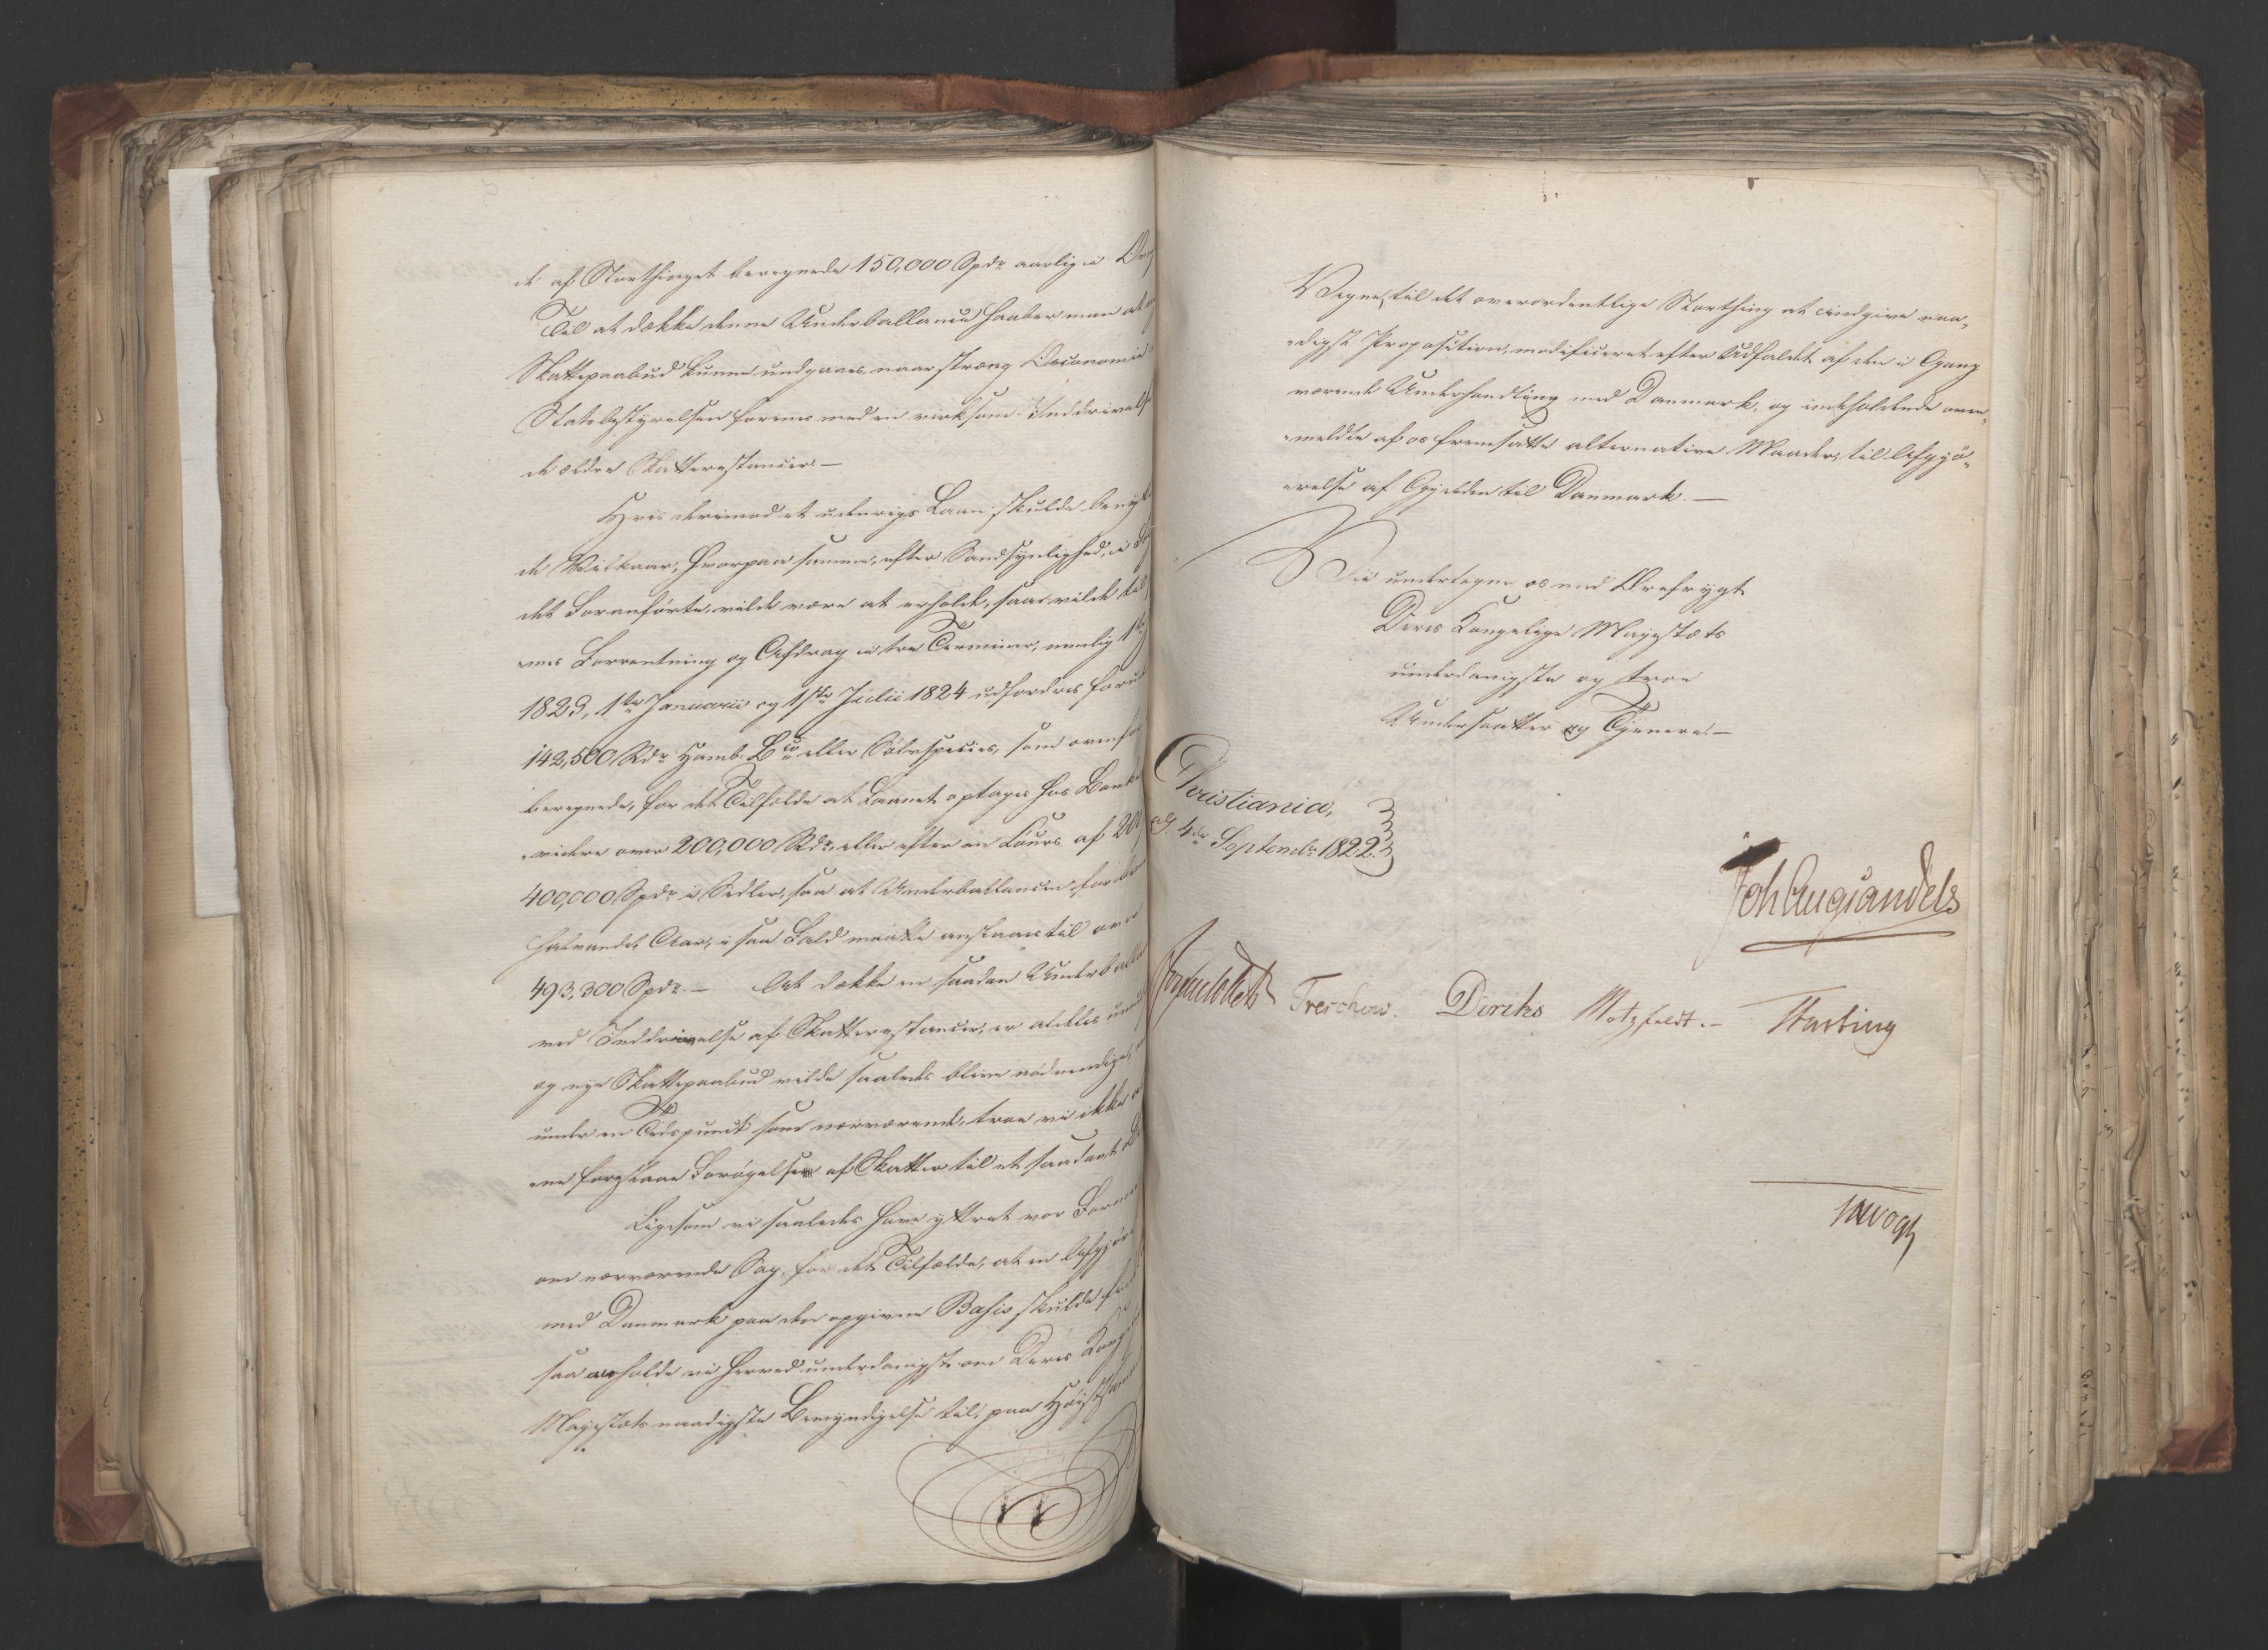 de af Storthinget beregnede 150,000 Spdr aarlig i
Til at dække denne Underballance haaber man at
Skattepaabud kunne undgaaes, naar stræng Oeconomie i
Statsbestyrelsen forenes med en virksom Inddrivelse
de ældre Skatterestancer. —
Hvis derimod et udenrigs Laan skulde
de Vilkaar, hvorpaa samme, efter Sandsynlighed, i
det Foranførte, vilde være at erholde, saa vilde til
nes Forrentning og Afdrag i tre Terminer, nemlig 1ste
1823, 1ste Januarii og 1ste Julii 1824 udfordres
142,500 Rdr Hamb. Bco eller Sølvspecies, som
beregnede, for det Tilfælde at Laanet optages hos
videre over 200,000 Rdr, eller efter en Cours af
400,000 Spdr i Sedler, saa at Underballancen for
halvandet Aar, i saa Fald maatte anslaaes til over
493,300 Spdr. — At dække en saadan
ved Inddrivelse af Skatterestancer, er aldeles
og nye Skattepaabud vilde saaledes blive nødvendige,
under en Tidspunct som nærværende, troe vi ikke
foreslaae Forøgelse af Skatter til et saadant
Ligesom vi saaledes have yttret vor
om nærværende Sag, for det Tilfælde, at en
med Danmark paa den opgivne Basis skulde
saa anholde vi herved underdanigst om Deres
Majestæts naadigste Bemyndigelse til, paa
Vegne, til det overordentlige Storthing at indgive naa-
-digst Proposition, modificeret efter Udfaldet af den i Gang
værende Underhandling med Danmark, og indeholdende oven-
-meldte af os fremsatte alternative Maader, til Afgjö-
-relse af Gjelden til Danmark. —
Vi undertegne os med Ærefrygt
Deres Kongelige Majestæts
underdanigste og troe
Undersaatter og Tjenere. —
Christiania,
d. 4de Septembr 1822.
Joh Aug Sandels
Treschow. Diriks Motzfeldt. — Fasting
Vogt